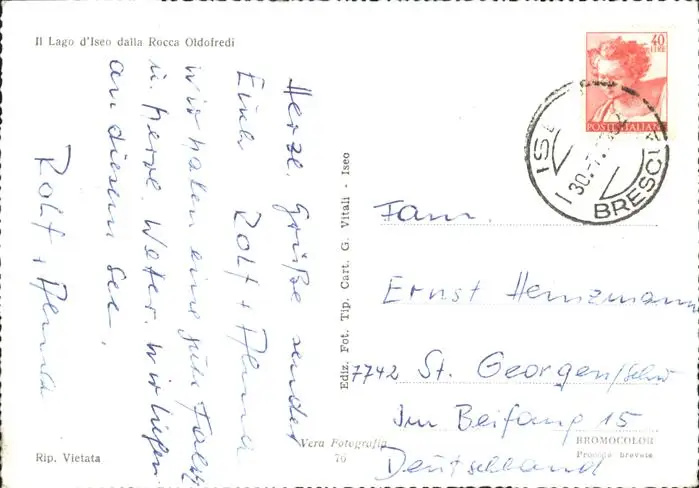 Il Lago d'Iseo dalla Rocca Oldofredi
Herzl. Grüße sendet
Euch Rolf +
wir haben eine gute Fahrt
u. herrl. Wetter. wir liegen
an diesem See.
Rolf +
Ediz. Fot. Tip. Cart. G. Vitali - Iseo
40
LIRE
POSTE ITALIANE
30.-7.
BRESCIA
Fam.
Ernst Heinzmann
7742 St. Georgen/Schw
Im Beifang 15
Deutschland
Vera Fotografia
76
BROMOCOLOR
Procédé breveté
Rip. Vietata